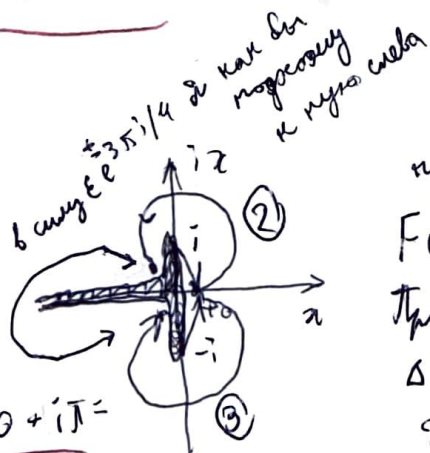 в силу εe^{±3πi/4} я как бы
подхожу
к нулю слева
ix
②
i
+0
x
-i
③
0 + iπ =
F(
Δ